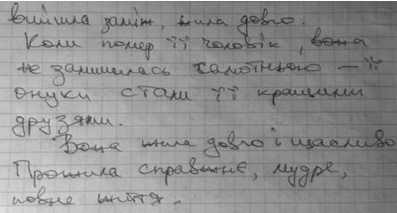 вийшла заміж, жила довго.
Коли помер її чоловік, вона
не залишилась самотньою – її
онуки стали її кращими
друзями.
Вона жила довго і щасливо
Прожила справжнє, мудре,
повне життя.